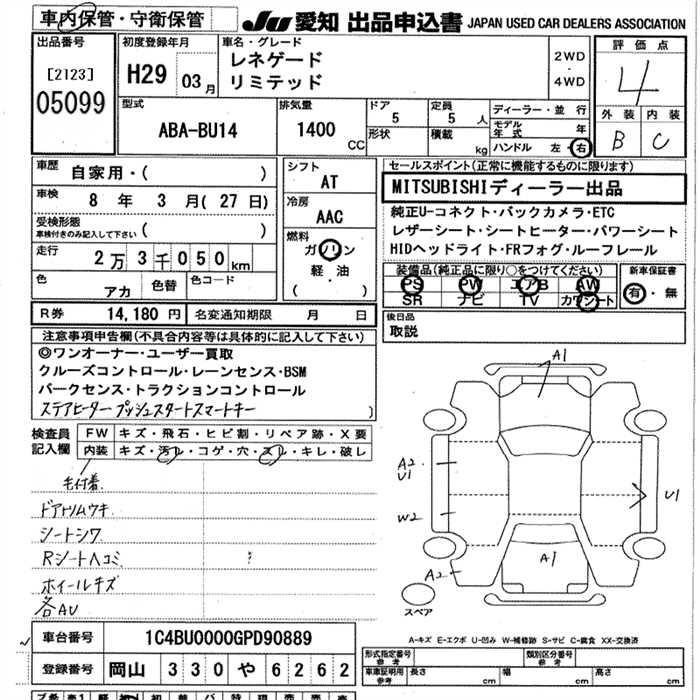 車内保管・守衛保管
JU 愛知 出品申込書 JAPAN USED CAR DEALERS ASSOCIATION
出品番号
[2123]
05099
初度登録年月
H29 03月
車名・グレード
レネゲード
リミテッド
2WD
・
4WD
評価点
4
外装 内装
B C
型式
ABA-BU14
排気量
1400 CC
ドア
5
形状
定員
5 人
積載
kg
ディーラー・並行
モデル年式 年
ハンドル 左・右
車歴
自家用・( )
車検
8 年 3 月 ( 27 日)
受検形態
車検付きのみ記入して下さい ( )
走行
2万3千050km
色
アカ
色替
色コード
シフト
AT
冷房
AAC
燃料
ガソリン
軽・油
( )
セールスポイント(正常に機能するものに限ります)
MITSUBISHIディーラー出品
純正U-コネクト・バックカメラ・ETC
レザーシート・シートヒーター・パワーシート
HIDヘッドライト・FRフォグ・ルーフレール
装備品(純正品に限り○をつけてください)
PS PW エアB AW
SR ナビ TV カワシート
新車保証書
有・無
R券 14,180 円 名変通知期限 月 日
後日品
取説
注意事項申告欄(不具合内容等は具体的に記入して下さい)
◎ワンオーナー・ユーザー買取
クルーズコントロール・レーンセンス・BSM
パークセンス・トラクションコントロール
ステアヒーター プッシュスタートスマートキー )
検査員記入欄
FW キズ・飛石・ヒビ割・リペア跡・X要
内装 キズ・汚レ・コゲ・穴・スレ・キレ・破レ
毛付着
ドアトリムウキ
シートシワ
Rシートヘコミ
ホイールキズ
各AU
A1
A2
U1
W2
A2
U1
A1
スペア
A-キズ E-エクボ U-凹み W-補修跡 S-サビ C-腐食 XX-交換済
車台番号 1C4BU0000GPD90889
登録番号 岡山 330 や 6262
形式指定番号 参考
類別区分番号 参考
車庫証明用 参考 長さ cm 幅 cm 高さ cm